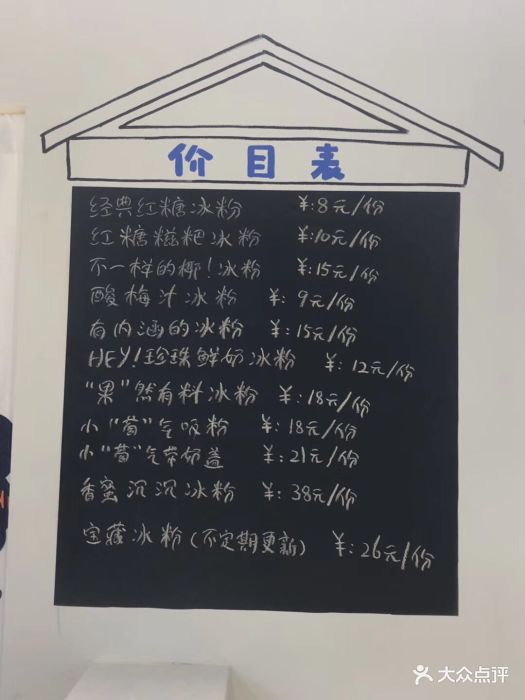 价目表
经典红糖冰粉 ¥:8元/份
红糖糍粑冰粉 ¥:10元/份
不一样的椰!冰粉 ¥:15元/份
酸梅汁冰粉 ¥:9元/份
有内涵的冰粉 ¥:15元/份
HEY!珍珠鲜奶冰粉 ¥:12元/份
"果"然有料冰粉 ¥:18元/份
小"葡"气吸粉 ¥:18元/份
小"葡"气带奶盖 ¥:21元/份
香蜜沉沉冰粉 ¥:38元/份
宝藏冰粉(不定期更新) ¥:26元/份
大众点评